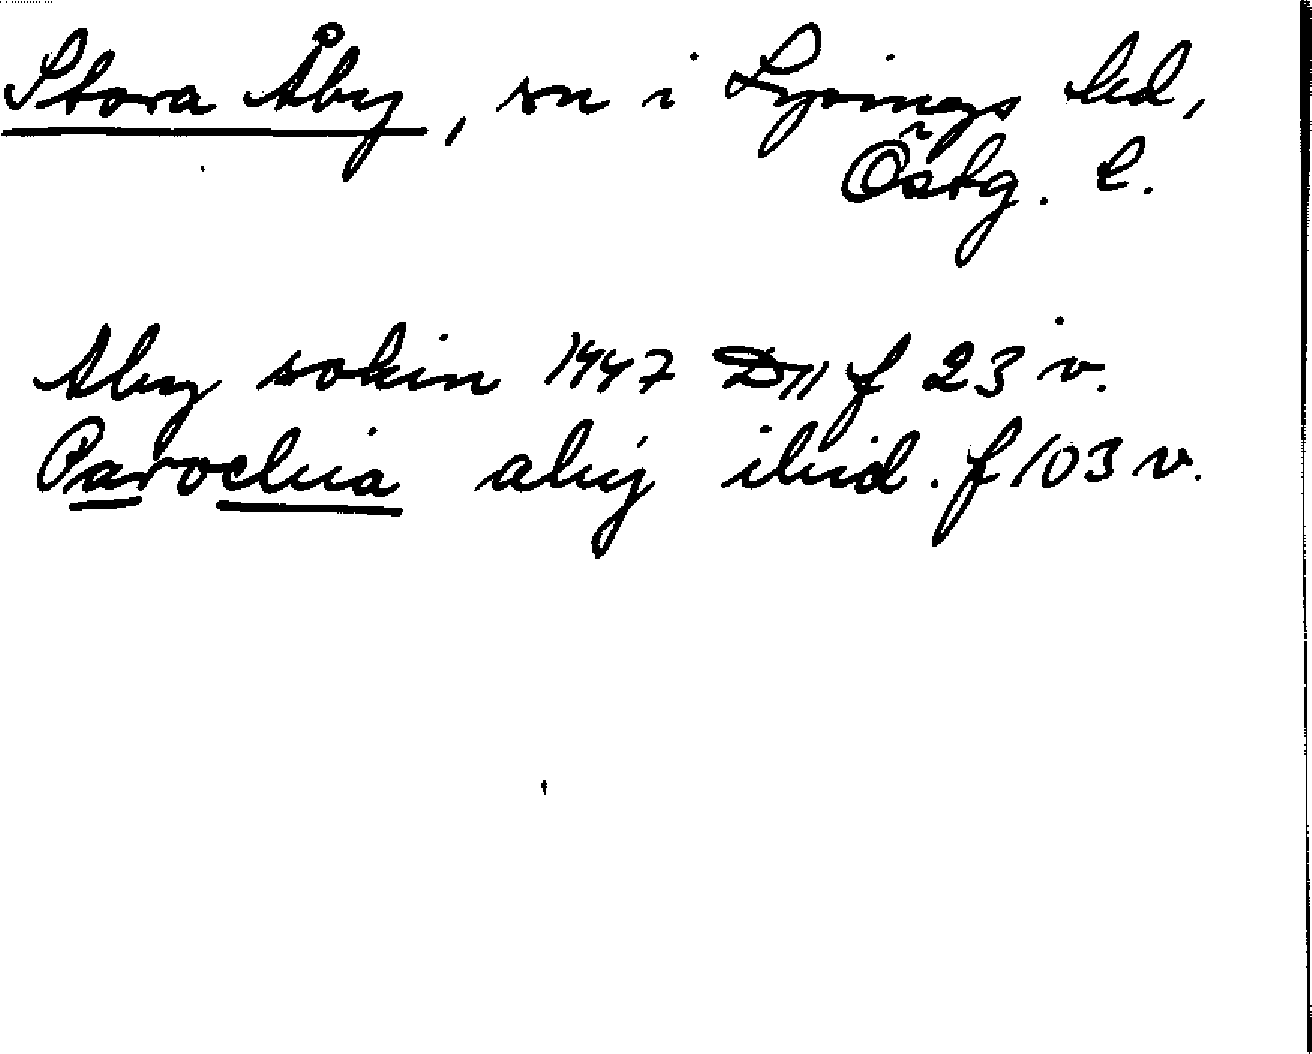 Stora Åby, sn i Lysings hd,
Östg. l.
Aby sokin 1447 D11 f 23 v.
Parochia abij ibid. f 103 v.